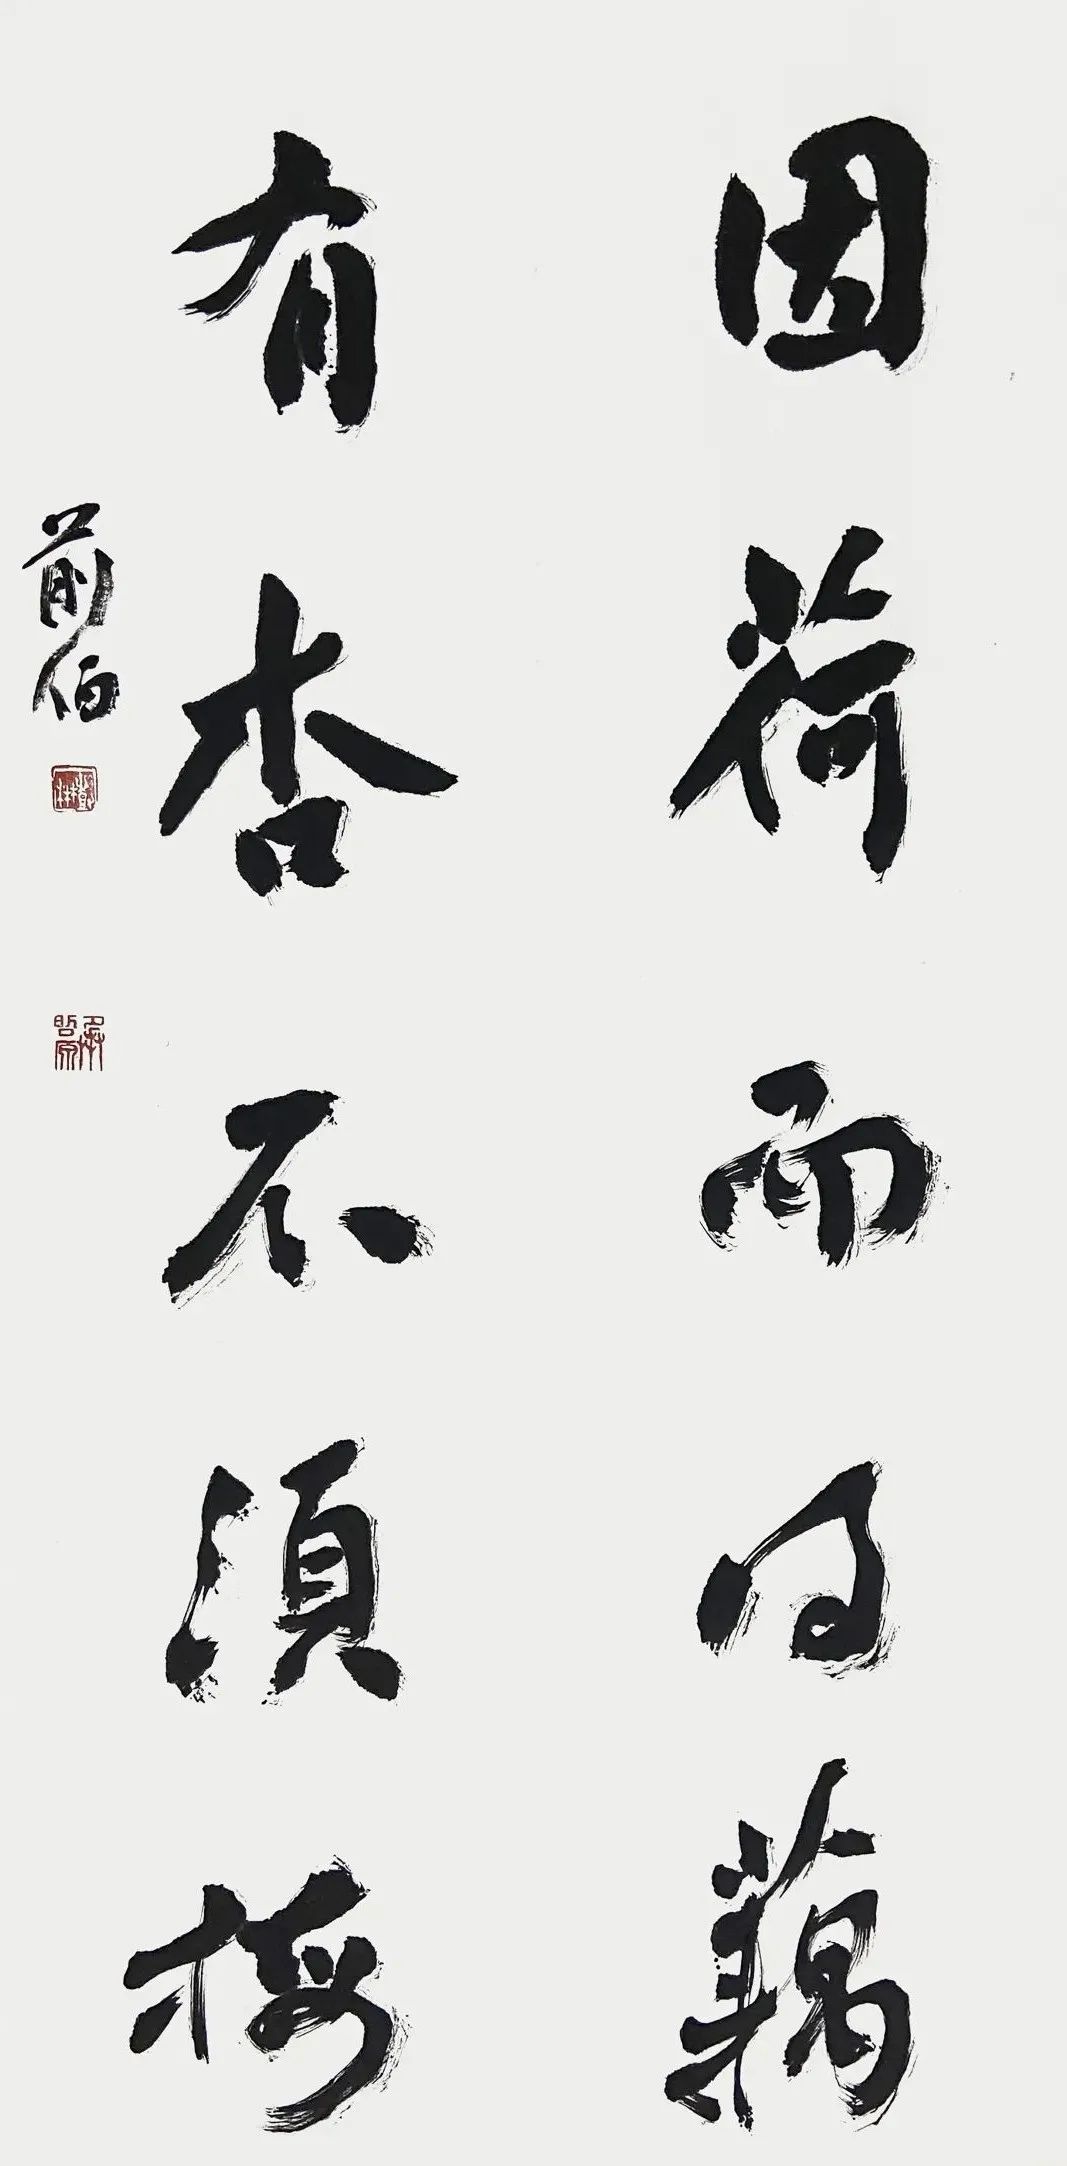 因荷而得藕
有杏不须梅
前伯